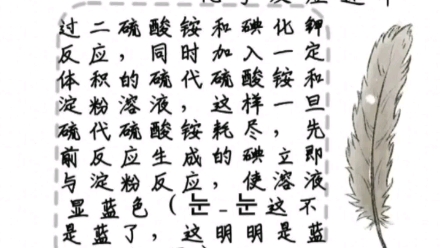 过二硫酸铵和碘化钾
反应，同时加入一定
体积的硫代硫酸铵和
淀粉溶液，这样一旦
硫代硫酸铵耗尽，先
前反应生成的碘立即
与淀粉反应，使溶液
显蓝色（눈_눈这不
是蓝了，这明明是蓝